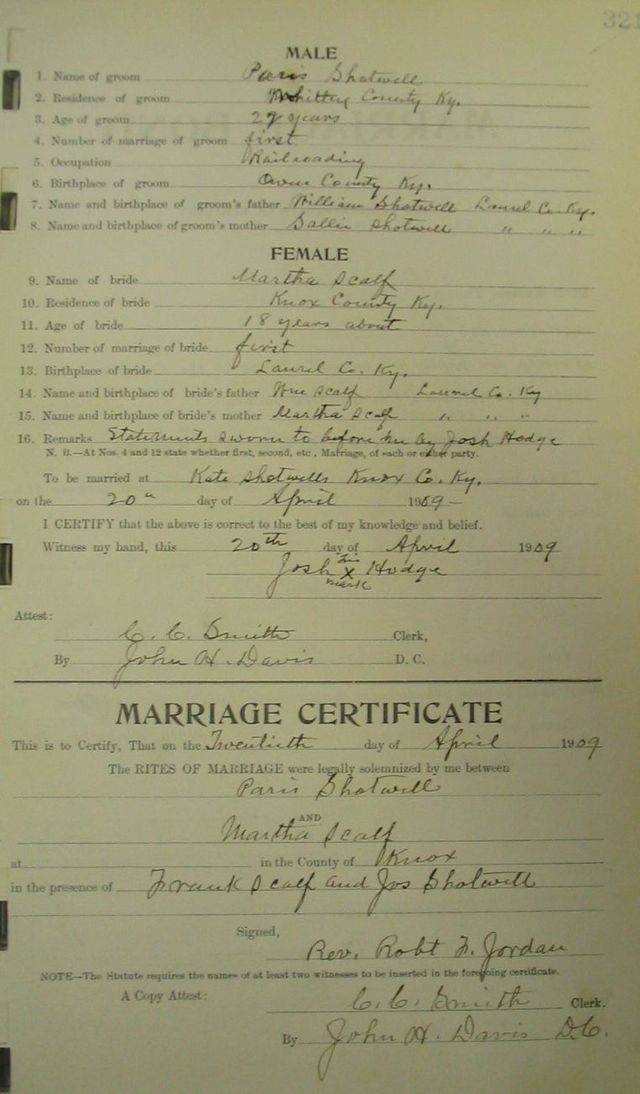 321
MALE
1. Name of groom Paris Shotwell
2. Residence of groom Whitley County Ky.
3. Age of groom 27 years
4. Number of marriage of groom first
5. Occupation Railroading
6. Birthplace of groom Owen County Ky.
7. Name and birthplace of groom's father William Shotwell Laurel Co. Ky.
8. Name and birthplace of groom's mother Sallie Shotwell " " "
FEMALE
9. Name of bride Martha Scalf
10. Residence of bride Knox County Ky.
11. Age of bride 18 years about
12. Number of marriage of bride first
13. Birthplace of bride Laurel Co. Ky.
14. Name and birthplace of bride's father Wm Scalf Laurel Co. Ky
15. Name and birthplace of bride's mother Martha Scalf " " "
16. Remarks Statements sworn to before me by Josh Hodge
N. B.—At Nos. 4 and 12 state whether first, second, etc., Marriage, of each or either party.
To be married at Kate Shotwells Knox Co. Ky.
on the 20th day of April 1909-
I CERTIFY that the above is correct to the best of my knowledge and belief.
Witness my hand, this 20th day of April 1909
Josh his X mark Hodge
Attest:
C. C. Smith Clerk,
By John H. Davis D. C.
MARRIAGE CERTIFICATE
This is to Certify, That on the Twentieth day of April 1909
The RITES OF MARRIAGE were legally solemnized by me between
Paris Shotwell
AND
Martha Scalf
at in the County of Knox
in the presence of Frank Scalf and Jos Shotwell
Signed,
Rev. Robt F. Jordan
NOTE—The Statute requires the names of at least two witnesses to be inserted in the foregoing certificate.
A Copy Attest: C. C. Smith Clerk.
By John H. Davis D.C.